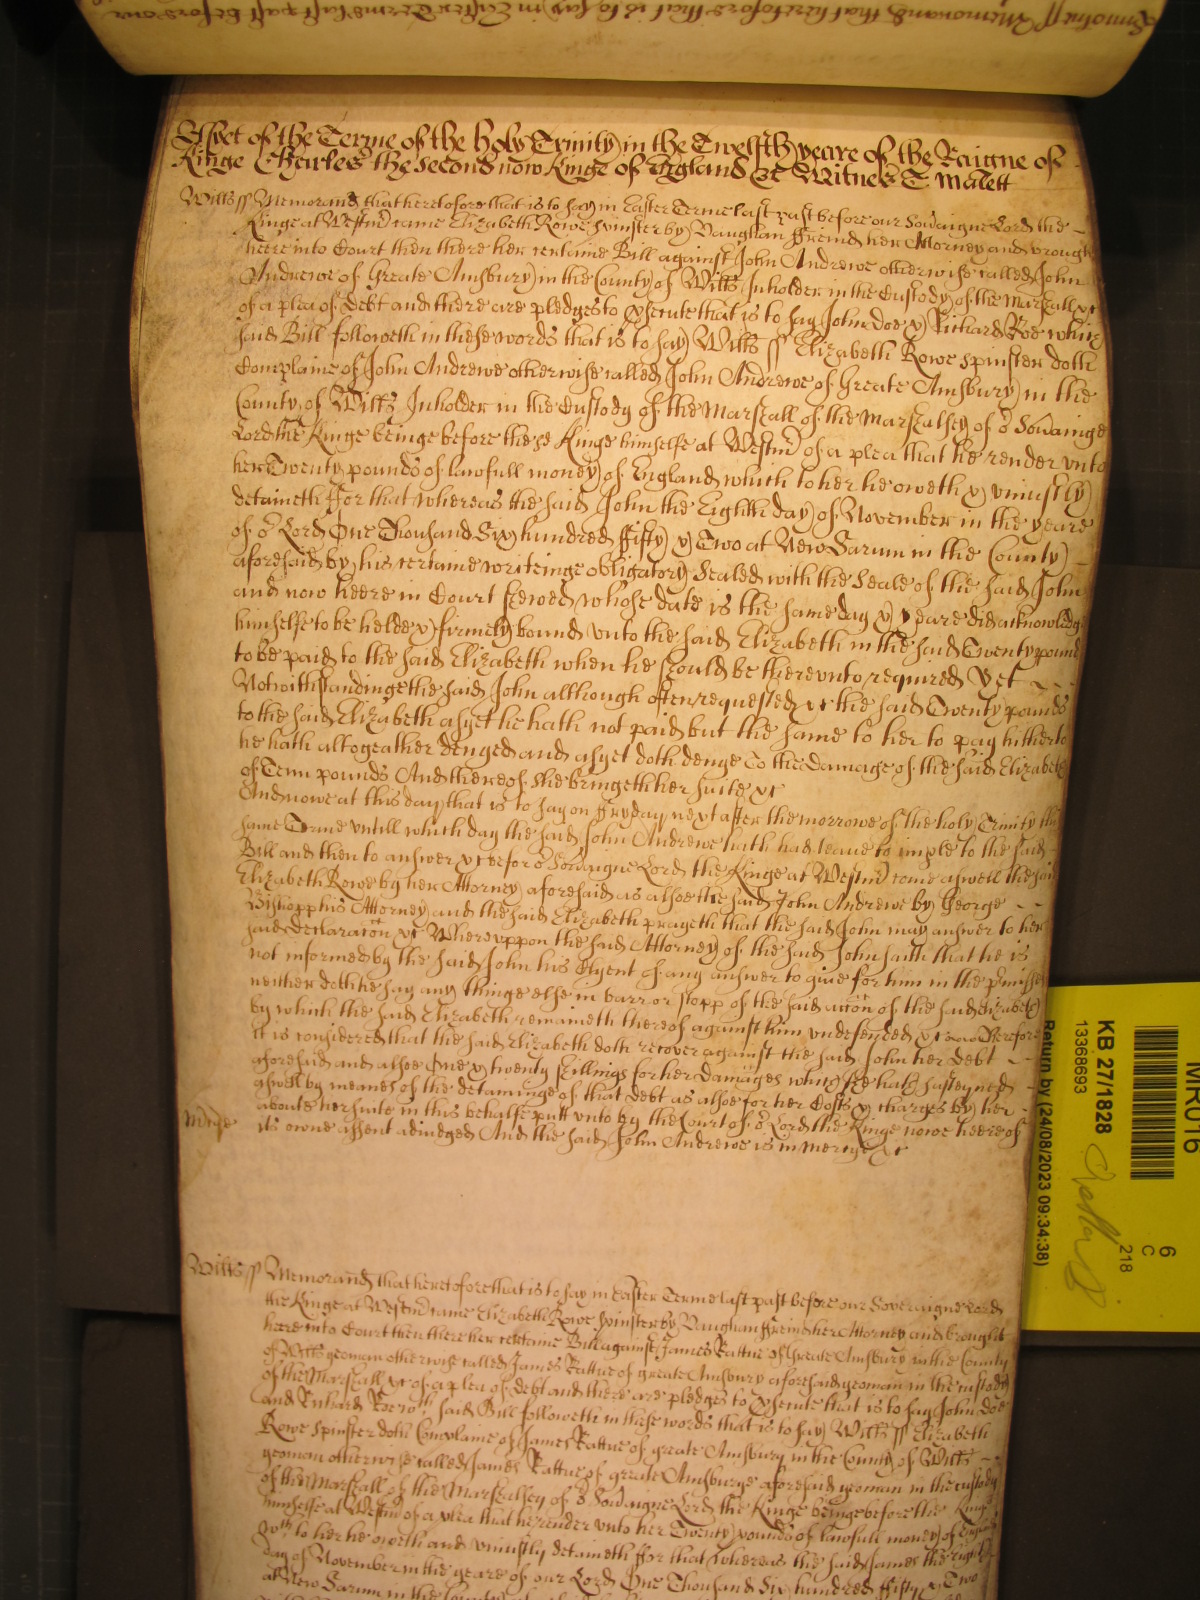 Memorand that heretofore that is to say in Easter Terme last past before our
As yet of the Terme of the holy Trinity in the Twelfth yeare of the Raigne of
Kinge Charles the Second now Kinge of England &c Witnes T Malett
Wilts ss Memorand that heretofore that is to say in Easter Terme last past before our Sovaigne Lord the
Kinge at Westmr came Elizabeth Rowe spinster by Vaughan ffreind her Attorney and brought
heere into Court then there her certaine Bill against John Andrewe otherwise called John
Andrewe of Greate Amsbury in the County of Wilts Inholder in the Custody of the Marshall &c
of a plea of Debt and there are pledges to prosecute that is to say John Doe & Richard Roe which
said Bill followeth in these words that is to say Wilts ss Elizabeth Rowe spinster doth
Complaine of John Andrewe otherwise called John Andrewe of Greate Amsbury in the
County of Wilts Inholder in the Custody of the Marshall of the Marshalsey of or Sovainge
Lord the Kinge beinge before the sd Kinge himselfe at Westmr of a plea that he render unto
her Twenty pounds of lawfull money of England which to her he oweth & uniustly
detaineth ffor that whereas the said John the Eighth day of November in the yeare
of or Lord One Thousand Six hundred ffifty & Two at New Sarum in the County
aforesaid by his certaine writeinge obligatory Sealed with the Seale of the said John
and now heere in Court shewed whose date is the same day & yeare did acknowledge
himselfe to be helde & firmely bound unto the said Elizabeth in the said Twenty pounds
to be paid to the said Elizabeth when he should be thereunto required Yet
Notwithstandinge the said John although often requested &c the said Twenty pounds
to the said Elizabeth as yet he hath not paid but the same to her to pay hitherto
he hath altogeather denyed and as yet doth denye To the Damage of the said Elizabeth
of Tenn pounds And thereof she bringeth her suite &c
And nowe at this day that is to say on ffryday next after the morrowe of the holy Trinity this
same Terme untill which day the said John Andrewe hath had leave to imple to the said
Bill and then to answer &c before or Sovaigne Lord the Kinge at Westmr come aswell the said
Elizabeth Rowe by her Attorney aforesaid as alsoe the said John Andrewe by George
Bishopp his Attorney and the said Elizabeth prayeth that the said John may answer to her
said declaracon &c Whereuppon the said Attorney of the said John saith that he is
not informed by the said John his Clyent of any answer to give for him in the pmisses
neither doth he say any thinge else in barr or stopp of the said accon of the said Elizabeth
by which the said Elizabeth remaineth thereof against him undefended &c Therefore
it is considered that the said Elizabeth doth recover against the said John her debt
aforesaid and alsoe One & twenty shillings for her Damages which she hath susteyned
aswell by meanes of the detaininge of that Debt as alsoe for her Costs & charges by her
about her suite in this behalfe putt unto by the Court of or Lord the Kinge nowe heere of
its owne assent adiudged And the said John Andrewe is in mercye &c
Wilts ss Memorand that heretofore that is to say in Easter Terme last past before our Soveraigne Lord
the Kinge at Westmr came Elizabeth Rowe spinster by Vaughan ffreind her Attorney and brought
heere into Court then there her certaine Bill against James Rattue of Greate Amsbury in the County
of Wilts yeoman otherwise called James Rattue of greate Amsbury aforesaid yeoman in the custody
of the Marshall &c of a plea of debt and there are pledges to prosecute that is to say John Doe
and Richard Roe wch said Bill followeth in these words that is to say Wilts ss Elizabeth
Rowe spinster doth Complaine of James Rattue of greate Amsbury in the County of Wilts
yeoman otherwise called James Rattue of greate Amsburye aforesaid yeoman in the custody
of the Marshall of the Marshalsey of or Sovaigne Lord the Kinge beinge before the Kinge
himselfe at Westmr of a plea that he render unto her Twenty pounds of lawfull money of England
wch to her he oweth and uniustly detaineth ffor that whereas the said James the eight
day of November in the yeare of our Lord One Thousand Six hundred ffifty & Two
at New Sarum in the County
MR016
6
C
218
KB 27/1828
13368693
Return by (24/08/2023 09:34:38)